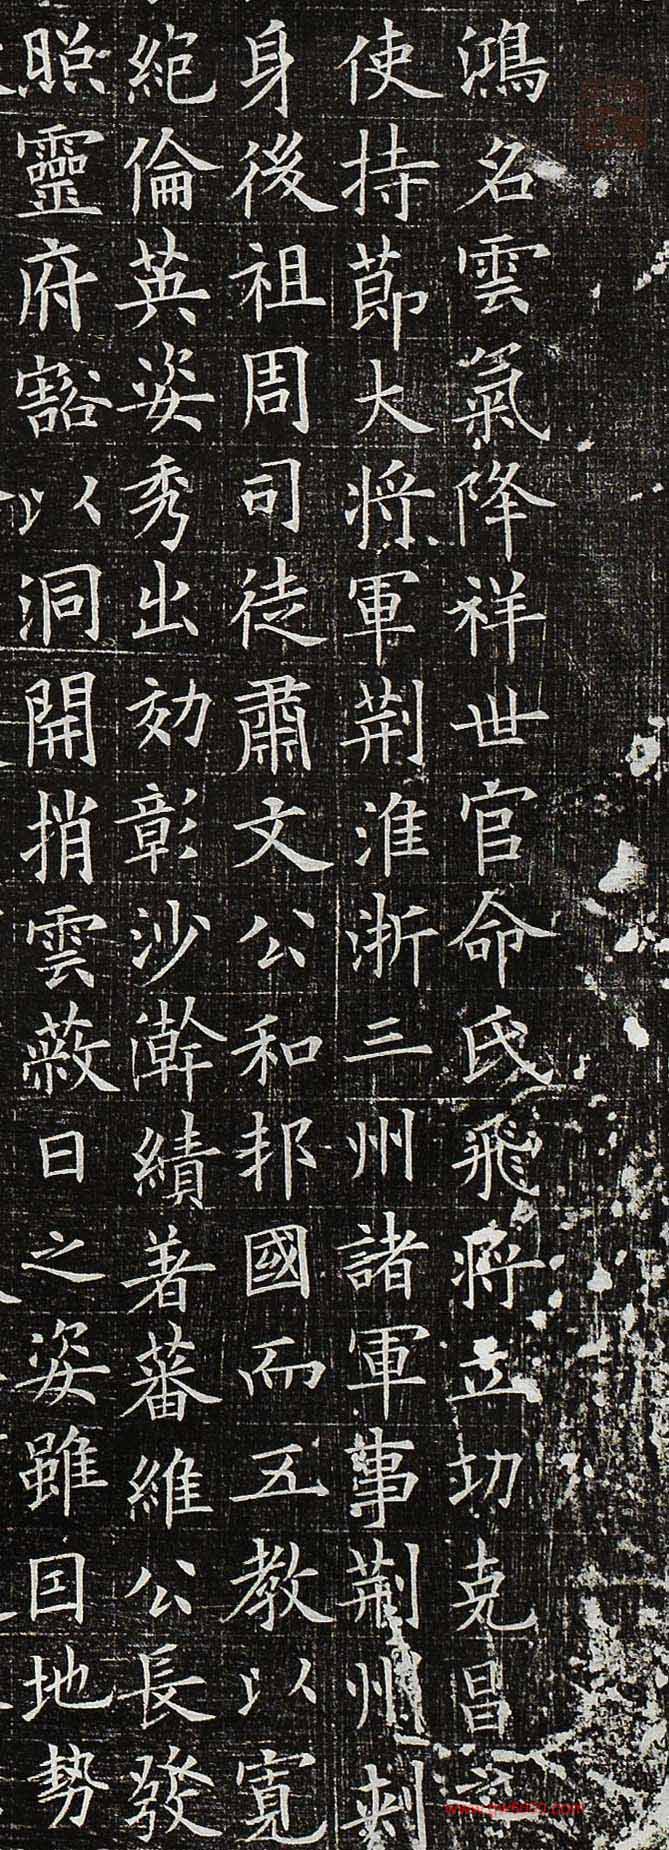 鴻名雲氣降祥世官命氏飛將立功克昌
使持莭大將軍荆淮浙三州諸軍事荆州刺
身後祖周司徒肅文公和邦國而五教以寛
絶倫英姿秀出効彰沙澣績著蕃維公長發
照靈府豁以洞開捎雲蔽日之姿雖因地勢